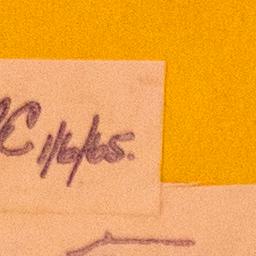 C 1/6/65.